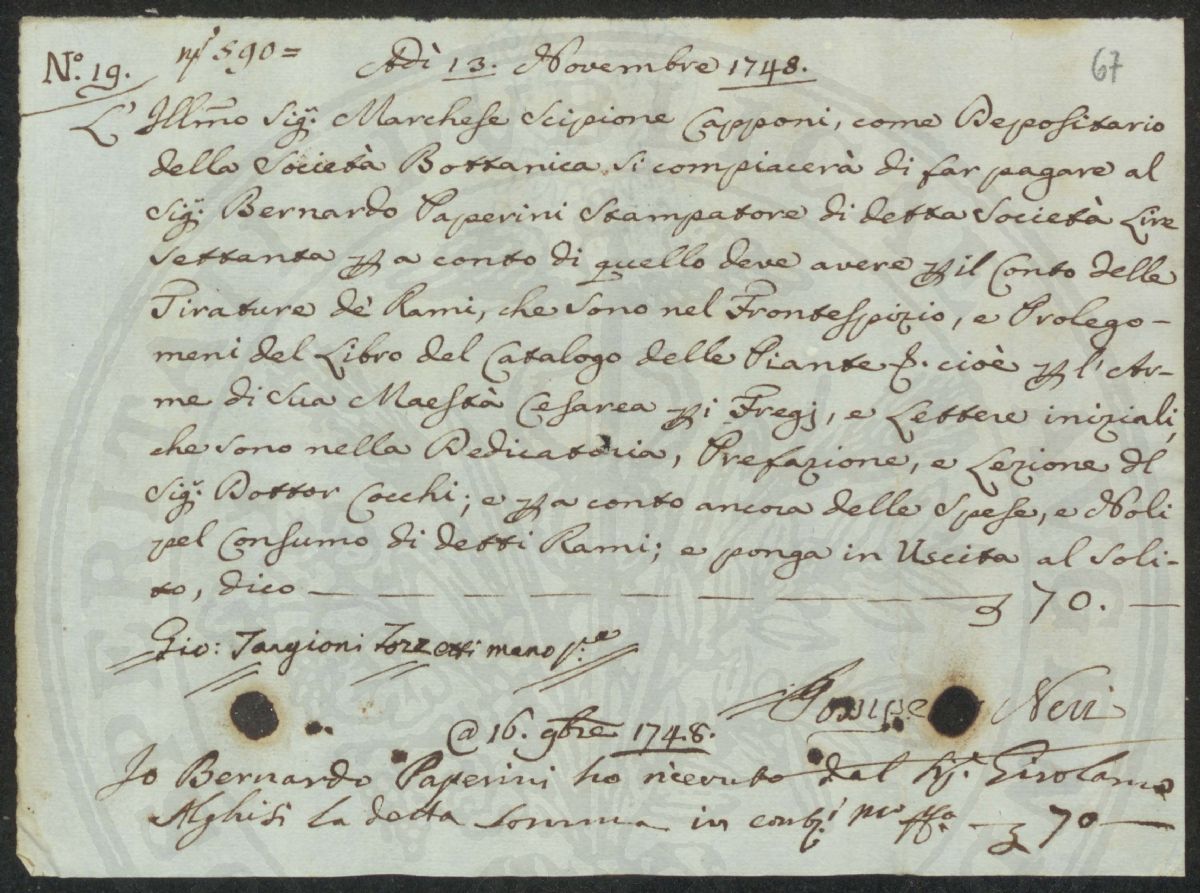 Nº. 19. nº 590= Adì 13. Novembre 1748. 67
L' Illmo Sig.r Marchese Scipione Capponi, come Depositario
della Società Bottanica si compiacerà di far pagare al
Sig.r Bernardo Paperini Stampatore di detta Società Lire
settanta p a conto di quello deve avere p il Conto delle
Tirature dè Rami, che sono nel Frontespizio, e Prolego-
meni del Libro del Catalogo delle Piante &. cioè p l'Ar-
me di Sua Maestà Cesarea p i Fregj, e Lettere iniziali,
che sono nella Dedicatoria, Prefazione, e Lezione dl
Sig.r Dottor Cocchi; e p a conto ancora delle Spese, e Noli
pel Consumo di detti Rami; e ponga in Uscita al soli-
to, dico — 70. —
Gio: Targioni Tozzetti mano p.a
Pompe Neri
@ 16. gbre 1748.
Io Bernardo Paperini ho riceuuto dal Sig.r Girolamo
Alghisi la detta somma in cont.i 70 —